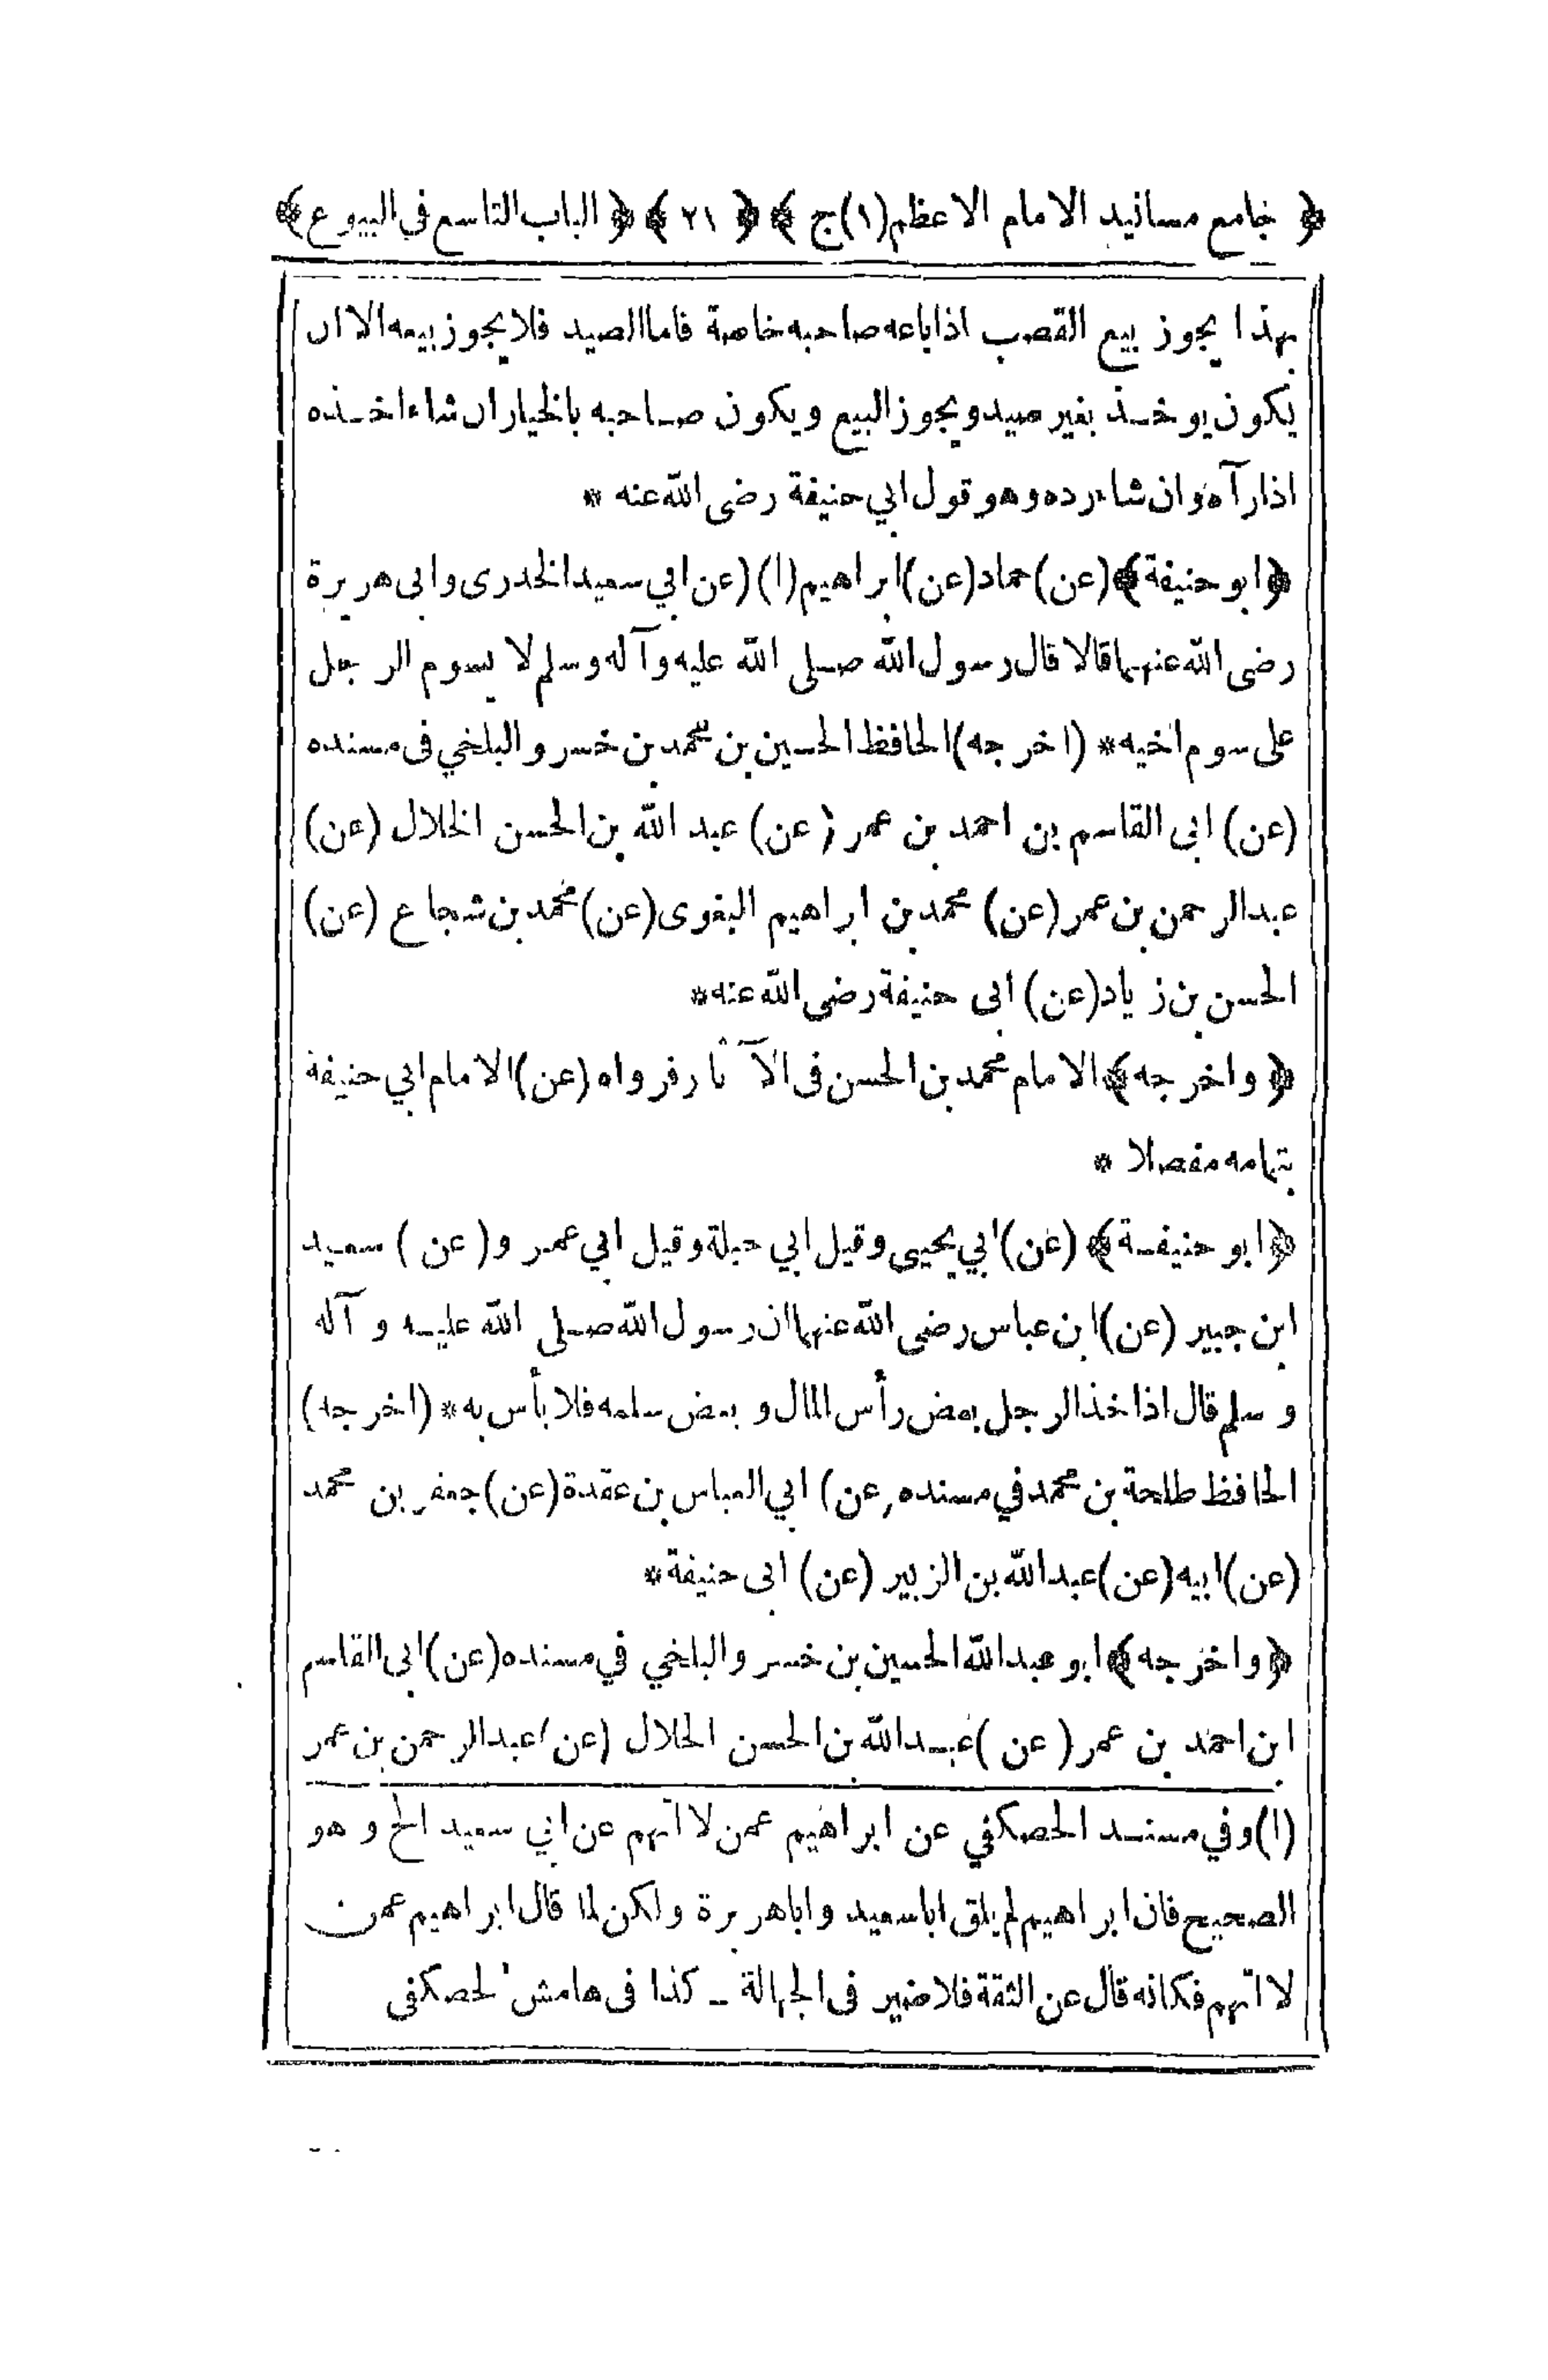 ﴿ جامع مسانيد الامام الاعظم(١)ج ﴾ ﴿ ٢١ ﴾ ﴿ الباب التاسع في البيوع ﴾
بهذا يجوز بيع القصب اذا باعه صاحبه خاصة فاما الصيد فلا يجوز بيعه الا ان
يكون يوخذ بغير صيد ويجوز البيع ويكون صاحبه بالخيار ان شاء اخذه
اذا رآه وان شاء رده وهو قول ابي حنيفة رضى الله عنه *
﴿ ابو حنيفة ﴾ (عن) حماد (عن) ابراهيم (١) (عن ابي سعيد الخدرى وابى هريرة
رضى الله عنهما قالا قال رسول الله صلى الله عليه وآله وسلم لا يسوم الرجل
على سوم اخيه * (اخرجه) الحافظ الحسين بن محمد بن خسرو البلخي فى مسنده
(عن) ابى القاسم بن احمد بن عمر (عن) عبد الله بن الحسن الخلال (عن)
عبد الرحمن بن عمر (عن) محمد بن ابراهيم البغوى (عن) محمد بن شجاع (عن)
الحسن بن زياد (عن) ابى حنيفة رضى الله عنه *
﴿ واخرجه ﴾ الامام محمد بن الحسن فى الآثار فرواه (عن) الامام ابي حنيفة
بتمامه مفصلا *
﴿ ابو حنيفة ﴾ (عن) ابي يحيى وقيل ابي جبلة وقيل ابي عمر و (عن) سعيد
ابن جبير (عن) ابن عباس رضى الله عنهما ان رسول الله صلى الله عليه و آله
و سلم قال اذا اخذ الرجل بعض رأس المال و بعض سلمه فلا بأس به * (اخرجه)
الحافظ طلحة بن محمد في مسنده (عن) ابي العباس بن عقدة (عن) جعفر بن محمد
(عن) ابيه (عن) عبد الله بن الزبير (عن) ابى حنيفة *
﴿ واخرجه ﴾ ابو عبد الله الحسين بن خسرو البلخي في مسنده (عن) ابى القاسم
ابن احمد بن عمر (عن) عبد الله بن الحسن الخلال (عن) عبد الرحمن بن عمر
(١) وفي مسند الحصكفي عن ابراهيم عمن لا اتهم عن ابي سعيد الخ و هو
الصحيح فان ابراهيم لم يلق ابا سعيد و ابا هريرة ولكن لما قال ابراهيم عمن
لا اتهم فكانه قال عن الثقة فلا ضير فى الجهالة ــ كذا فى هامش الحصكفى